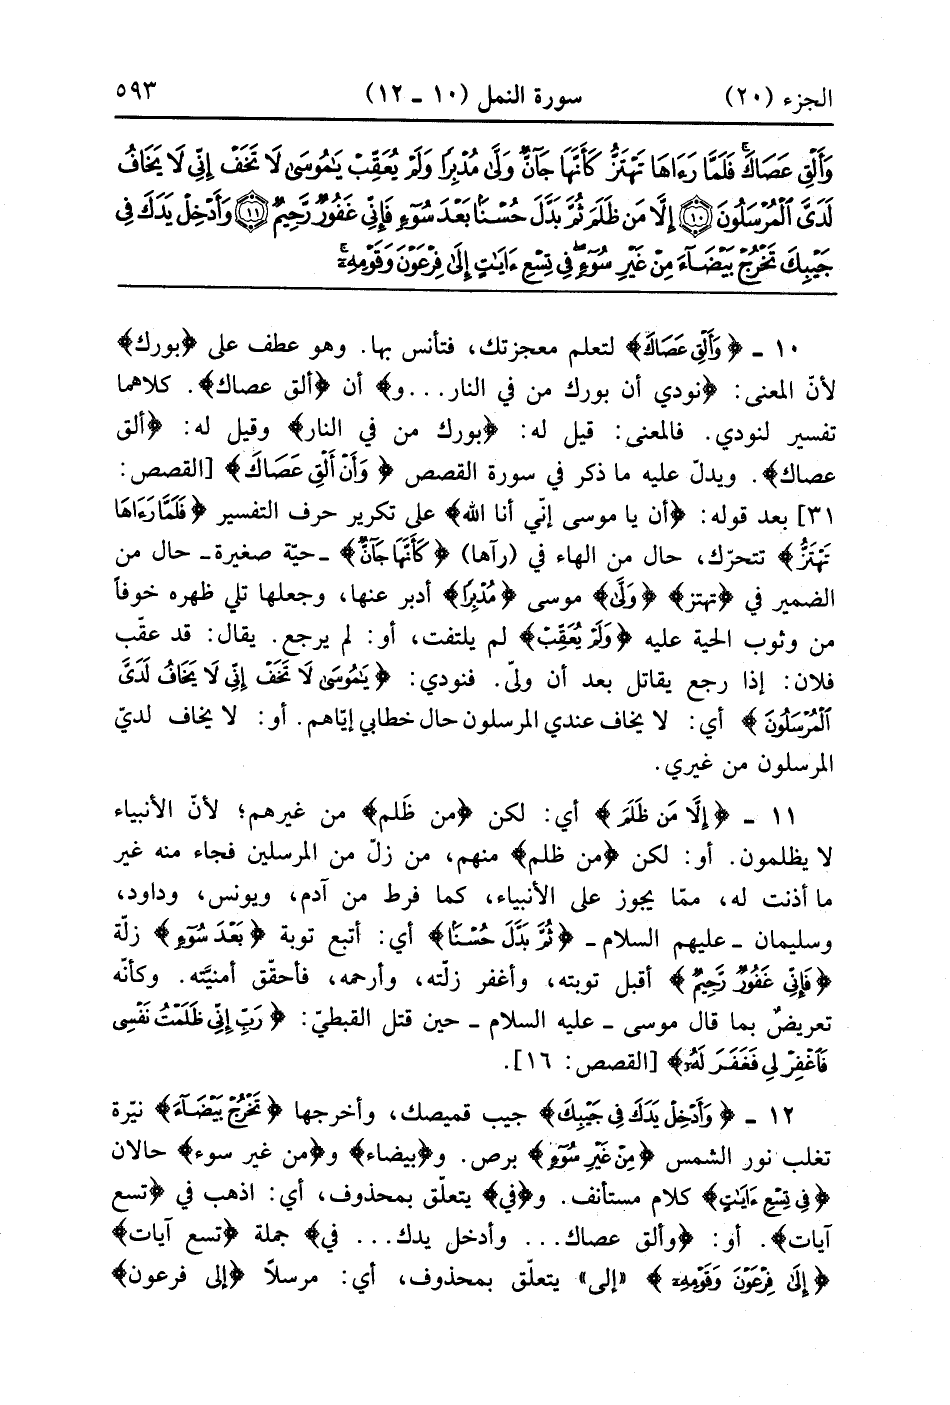 الجزء (٢٠) سورة النمل (١٠ - ١٢) ٥٩٣
وَأَلْقِ عَصَاكَ فَلَمَّا رَءَاهَا تَهْتَزُّ كَأَنَّهَا جَآنٌّ وَلَّىٰ مُدْبِرًا وَلَمْ يُعَقِّبْ يَٰمُوسَىٰ لَا تَخَفْ إِنِّي لَا يَخَافُ
لَدَيَّ ٱلْمُرْسَلُونَ ﴿١٠﴾ إِلَّا مَن ظَلَمَ ثُمَّ بَدَّلَ حُسْنًۢا بَعْدَ سُوٓءٍ فَإِنِّي غَفُورٌ رَّحِيمٌ ﴿١١﴾ وَأَدْخِلْ يَدَكَ فِي
جَيْبِكَ تَخْرُجْ بَيْضَآءَ مِنْ غَيْرِ سُوٓءٍ فِي تِسْعِ ءَايَٰتٍ إِلَىٰ فِرْعَوْنَ وَقَوْمِهِۦٓ
١٠ - ﴿وَأَلْقِ عَصَاكَ﴾ لتعلم معجزتك، فتأنس بها. وهو عطف على ﴿بورك﴾
لأنّ المعنى: ﴿نودي أن بورك من في النار...و﴾ أن ﴿ألق عصاك﴾. كلاهما
تفسير لنودي. فالمعنى: قيل له: ﴿بورك من في النار﴾ وقيل له: ﴿ألق
عصاك﴾. ويدلّ عليه ما ذكر في سورة القصص ﴿وَأَنْ أَلْقِ عَصَاكَ﴾ [القصص:
٣١] بعد قوله: ﴿أن يا موسى إنّي أنا الله﴾ على تكرير حرف التفسير ﴿فَلَمَّا رَءَاهَا
تَهْتَزُّ﴾ تتحرّك، حال من الهاء في (رآها) ﴿كَأَنَّهَا جَآنٌّ﴾ -حيّة صغيرة- حال من
الضمير في ﴿تهتز﴾ ﴿وَلَّىٰ﴾ موسى ﴿مُدْبِرًا﴾ أدبر عنها، وجعلها تلي ظهره خوفاً
من وثوب الحية عليه ﴿وَلَمْ يُعَقِّبْ﴾ لم يلتفت، أو: لم يرجع. يقال: قد عقّب
فلان: إذا رجع يقاتل بعد أن ولىّ. فنودي: ﴿يَٰمُوسَىٰ لَا تَخَفْ إِنِّي لَا يَخَافُ لَدَيَّ
ٱلْمُرْسَلُونَ﴾ أي: لا يخاف عندي المرسلون حال خطابي إيّاهم. أو: لا يخاف لديّ
المرسلون من غيري.
١١ - ﴿إِلَّا مَن ظَلَمَ﴾ أي: لكن ﴿من ظَلم﴾ من غيرهم؛ لأنّ الأنبياء
لا يظلمون. أو: لكن ﴿من ظلم﴾ منهم، من زلّ من المرسلين فجاء منه غير
ما أذنت له، ممّا يجوز على الأنبياء، كما فرط من آدم، ويونس، وداود،
وسليمان - عليهم السلام - ﴿ثُمَّ بَدَّلَ حُسْنًۢا﴾ أي: أتبع توبة ﴿بَعْدَ سُوٓءٍ﴾ زلّة
﴿فَإِنِّي غَفُورٌ رَّحِيمٌ﴾ أقبل توبته، وأغفر زلّته، وأرحمه، فأحقّق أمنيَّته. وكأنّه
تعريضٌ بما قال موسى - عليه السلام - حين قتل القبطيّ: ﴿رَبِّ إِنِّي ظَلَمْتُ نَفْسِي
فَٱغْفِرْ لِي فَغَفَرَ لَهُۥ﴾ [القصص: ١٦].
١٢ - ﴿وَأَدْخِلْ يَدَكَ فِي جَيْبِكَ﴾ جيب قميصك، وأخرجها ﴿تَخْرُجْ بَيْضَآءَ﴾ نيّرة
تغلب نور الشمس ﴿مِنْ غَيْرِ سُوٓءٍ﴾ برص. و﴿بيضاء﴾ و﴿من غير سوء﴾ حالان
﴿فِي تِسْعِ ءَايَٰتٍ﴾ كلام مستأنف. و﴿في﴾ يتعلّق بمحذوف، أي: اذهب في ﴿تسع
آيات﴾. أو: ﴿وألق عصاك... وأدخل يدك... في﴾ جملة ﴿تسع آيات﴾
﴿إِلَىٰ فِرْعَوْنَ وَقَوْمِهِۦٓ﴾ «إلى» يتعلّق بمحذوف، أي: مرسلاً ﴿إلى فرعون﴾